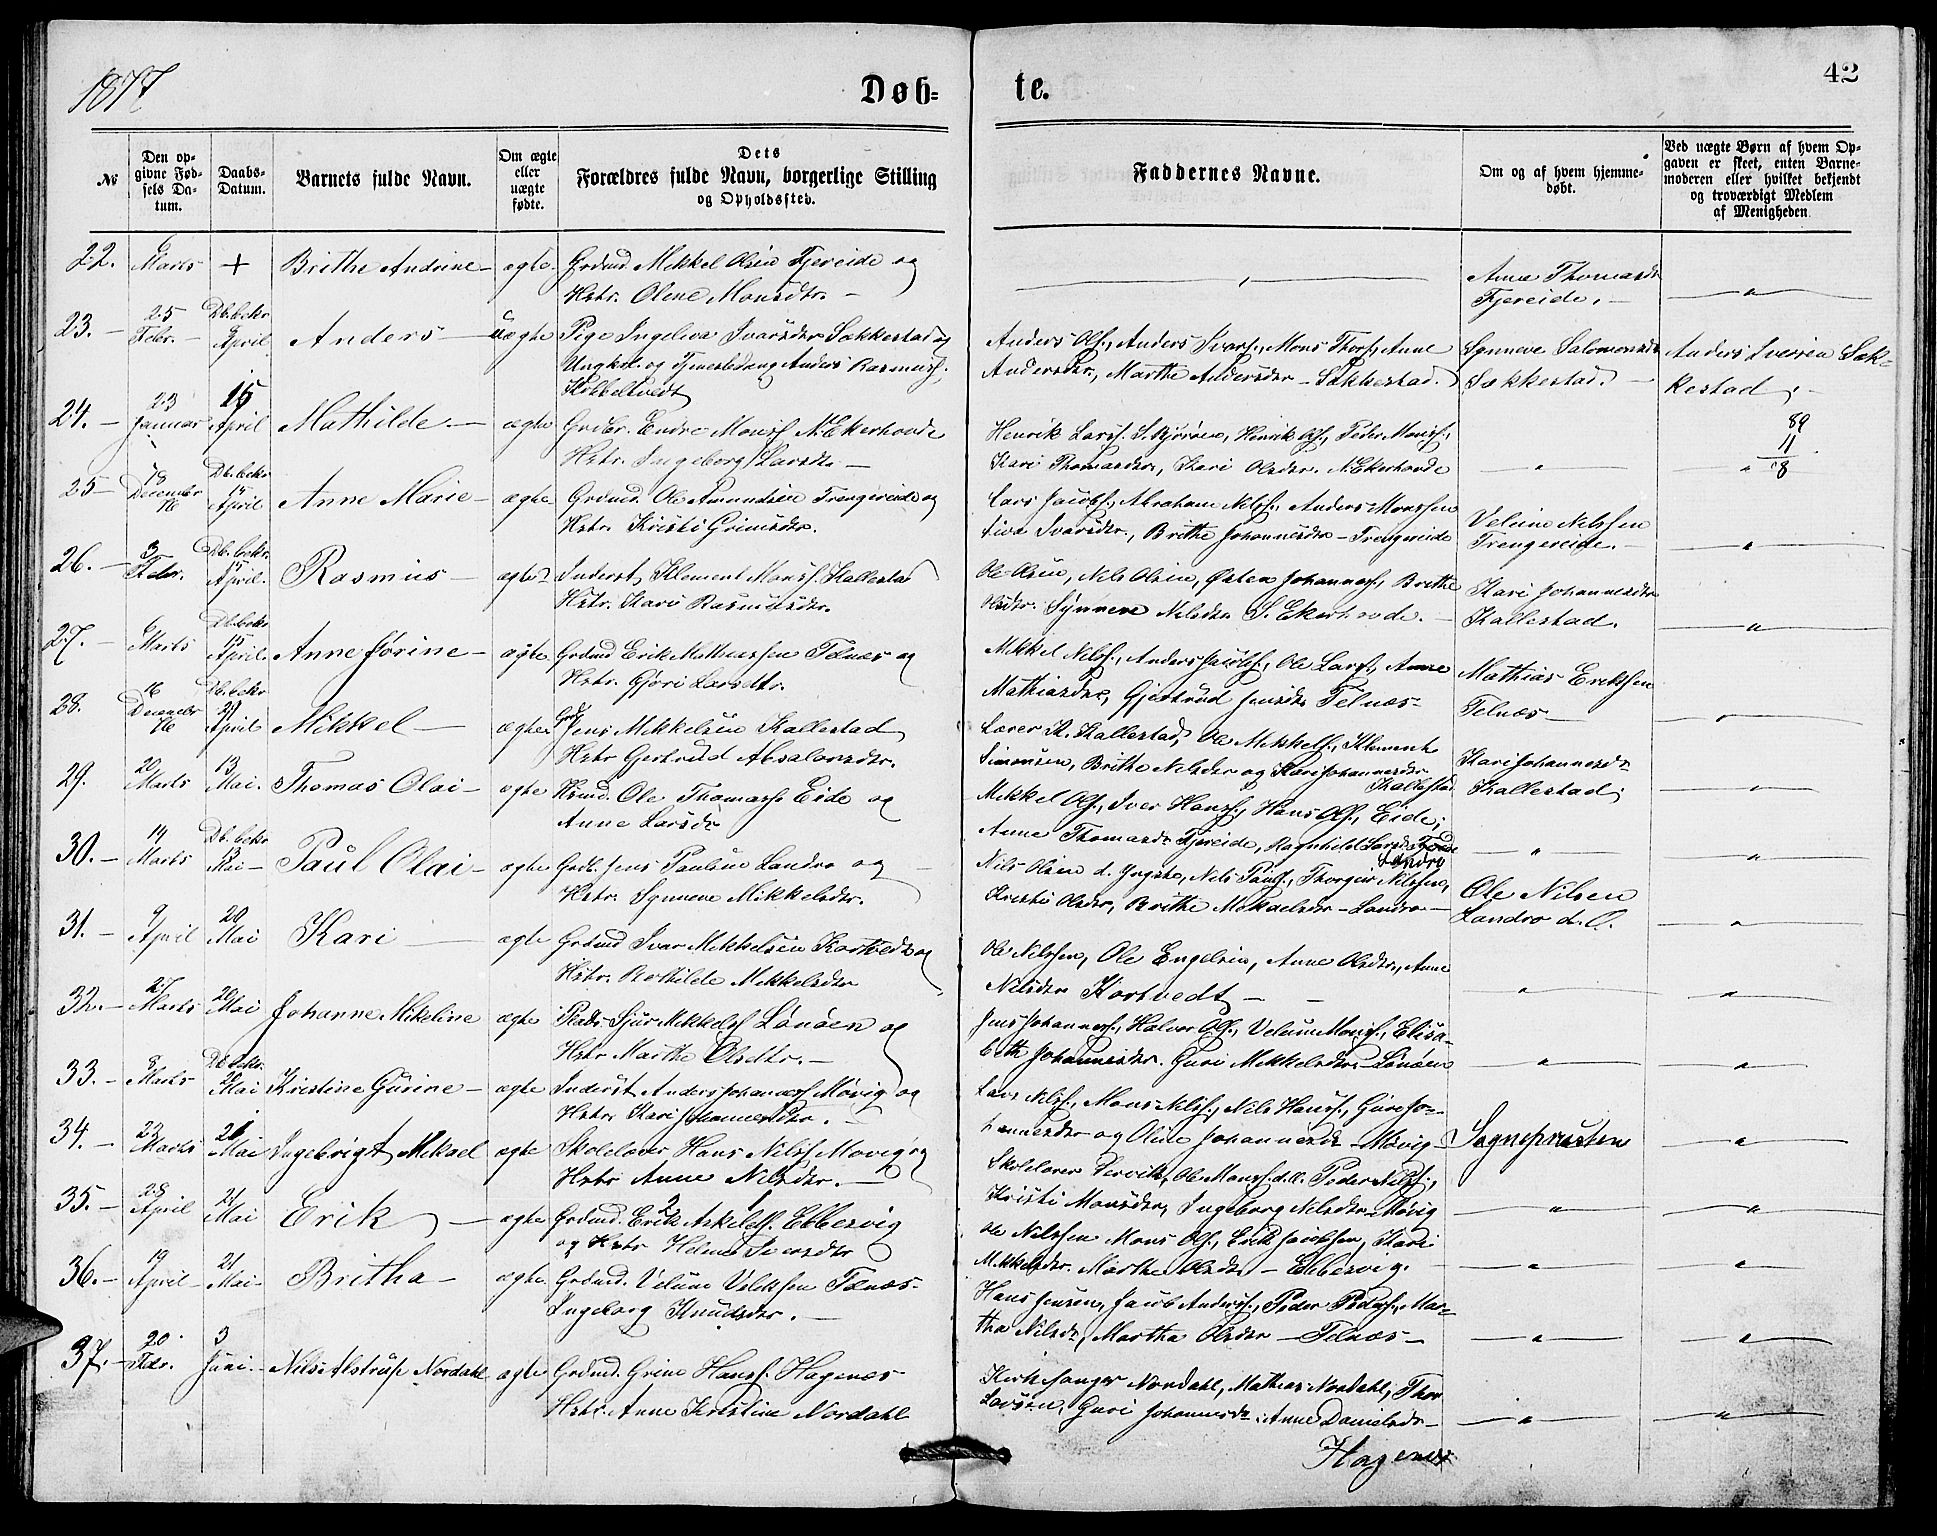 1877
Døb-
te.
42
№
Den op-
givne Fød-
sels Da-
tum.
Daabs-
Datum.
Barnets fulde Navn.
Om ægte
eller
uægte
fødte.
Dets
Forældres fulde Navn, borgerlige Stilling
og Opholdssted.
Faddernes Navne.
Om og af hvem hjemme-
døbt.
Ved uægte Børn af hvem Op-
gaven er skeet, enten Barne-
moderen eller hvilket bekjendt
og troværdigt Medlem
af Menigheden
22. 6 Marts + Brithe Andrine ægte Grdmd Mikkel Olsen Fjereide og
Hstr. Olene Monsdtr.
Anna Thomasdr
Fjereide.
23. 25 Febr. Db. bekr. April Anders uægte Pige Ingeliva Ivarsdtr Sækkestad og
Ungkarl og Anders Rasmuss.
Kobbeltvedt
Anders Ols., Anders Ivars., Mons Thors., Anne
Andersdtr., Marthe Andersdtr - Sækkestad.
Synneve Salomonsdr
Sækkestad.
Anders Iversen Sæk-
kestad
24. 23 Januar 15 April Mathilde ægte Grdbr. Endre Monss. N. Ekerhovde
Hstr. Ingeborg Larsdtr
Henrik Larss. S. Bjørøen, Henrik Ols., Peder Monss.,
Kari Thomasdtr, Kari Olsdtr. N. Ekerhovde
89
11
8
25 18 December 76 Db. bekr 15 April Anne Marie ægte Grdmd. Ole Amundsen Trengereide og
Hstr. Kristi Grimsdtr.
Lars Jacobs., Abraham Nilss., Anders Monssen
Siva Ivarsdtr., Brithe Johannesdtr - Trengereide
Velum Nilssen
Trengereide.
26. 3 Febr. Db. bekr. 15 April. Rasmus ægte Inderst Klement Monss. Kallestad
Hstr. Kari Rasmusdtr.
Ole Olsen, Nils Olsen, Østen Johanness., Brithe
Olsdtr. Synneve Nilsdtr. S. Ekerhovde.
Kari Johannesdtr
Kallestad.
27. 6 Marts Db. bekr 15 April Anne Jørine ægte Grdmd Erik Mathiassen Telnæs og
Hstr. Gjøri Larsdtr.
Mikkel Nilss., Anders Jacobs., Ole Larss., Anne
Mathiasdtr, Gjertrud Jensdtr Telnæs
Mathias Eriksen
Telnæs
28. 16 December 76 Db. bekr April Mikkel ægte Grdmd Jens Mikkelsen Kallestad
Hstr Gertrud Absalonsdtr.
Lærer K. Kallestad, Ole Mikkels., Klement
Simonsen, Brithe Nilsdtr og Kari Johannesdtr
Kallestad
Kari Johannesdr
Kallestad
29. 20 Marts 13 Mai. Thomas Olai ægte Hsmd. Ole Thomass Eide og
Anne Larsdr
Mikkel Ols., Iver Hanss., Hans Ols., Eide;
Anne Thomasdr Fjereide, Ragnhild Larsdr
30. 14 Marts Db. bekr 13 Mai Paul Olai ægte Grdb. Jens Paulsen Landro og
Hstr. Synneve Mikkelsdtr.
Landro
Nils Olsen d. Yngste, Nils Pauls., Thorgeir Nilssen,
Kristi Olsdtr, Brithe Mikaelsdtr - Landro
Ole Nilsen
Landro d. O.
31. 9 April 20 Mai Kari ægte Grdmd Ivar Mikkelsen Kortvedt og
Hstr. Bothilde Mikkelsdtr
Ole Nilssen, Ole Engelsen, Anne Olsdtr, Anne
Nilsdtr Kortvedt
32. 27 Marts 20 Mai Johanne Mikeline ægte Plads. Sjur Mikkels Lønøen og
Hstr Marthe Olsdtr.
Jens Johannes., Halvor Ols., Velum Monss., Elisa-
beth Johannesdtr. Guri Mikkelsdtr - Lønøen
33. 8 Marts Db. bekr. Mai Kristine Gurine ægte Inderst Anders Johanness Møvig og
Hstr Kari Johannesdtr.
Lars Nilss., Mons Nilss., Nils Hanss., Guri Jo-
hannesdtr og Oline Johannesdtr - Møvig
34. 23 Marts 21 Mai Ingebrigt Mikael ægte Skolelærer Hans Nilss Møvig og
Hstr Anne Nilsdtr.
Skolelærer Lervik, Ole Monss. d. æ. Peder Nilss.,
Kristi Monsdtr, Ingeborg Nilsdtr - Møvig
Sognepresten
35. 28 April 21 Mai Erik ægte Grdmd. Erik Askels. Ebbesvig
og Hstr Helene Iversdtr
Ole Nilssen Mons Ols., Erik Jacobsen, Kari
Mikkelsdtr. Marthe Olsdtr - Ebbesvig.
36. 19 April 21 Mai Britha ægte Grdmd. Velum Velumsen Telnæs
Ingeborg Knudsdtr.
Hans Jensen, Jacob Anders., Peder Peders., Mar-
tha Nilsdr, Martha Olsdtr - Telnæs
37. 20 Febr. 3 Juni. Nils Alstrup Nordahl ægte Grdmd. Grim Hanss. Hagenæs
Hstr. Anne Kristine Nordahl
Kirkesanger Nordahl, Mathias Nordahl, Thor
Larsen, Guri Johannesdr, Anne Danielsdr
Hagenæs